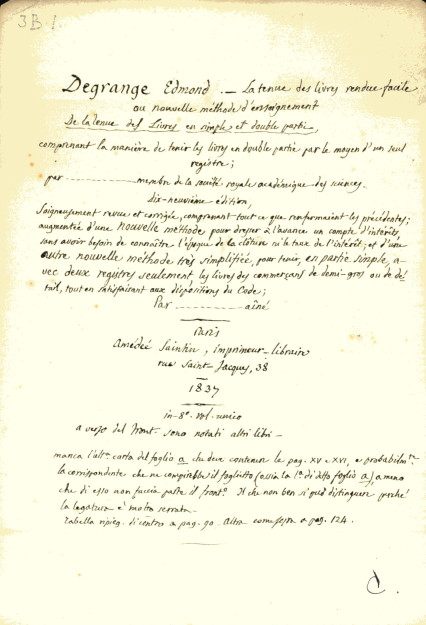 3B 1
Degrange Edmond. — La tenue des livres rendue facile
ou nouvelle méthode d'enseignement
De la tenue des Livres en simple et double partie,
comprenant la manière de tenir les livres en double partie par le moyen d'un seul
registre;
par ———— membre de la société royale académique des sciences.
dix-neuvième édition,
soigneusement revue et corrigée, comprenant tout ce que renfermaient les précédentes;
augmentée d'une nouvelle méthode pour dresser à l'avance un compte d'intérêts,
sans avoir besoin de connaître l'époque de la clôture ni le taux de l'intérêt; et d'une
autre nouvelle méthode très simplifiée, pour tenir, en partie simple, a-
vec deux registres seulement les livres des commerçans de demi-gros ou de dé-
tail, tout en satisfaisant aux dispositions du Code;
Par ———— aîné
Paris
Amédée Saintin, imprimeur-libraire
rue Saint-Jacques, 38
1837
in-8°. vol. unico
a verso del front. sono notati altri libri —
manca l'alt. carta del foglio a che deve contenere le pag. XV e XVI, e probabilm.te
la corrispondente che ne compirebbe il foglietto (ossia la 1a di detto foglio a), a meno
che di esso non faccia parte il front.o Il che non ben si può distinguere perché
la legatura è molto serrata.
Tabella ripieg. di contro a pag. 90. Altra come sopra a pag. 124.
C.